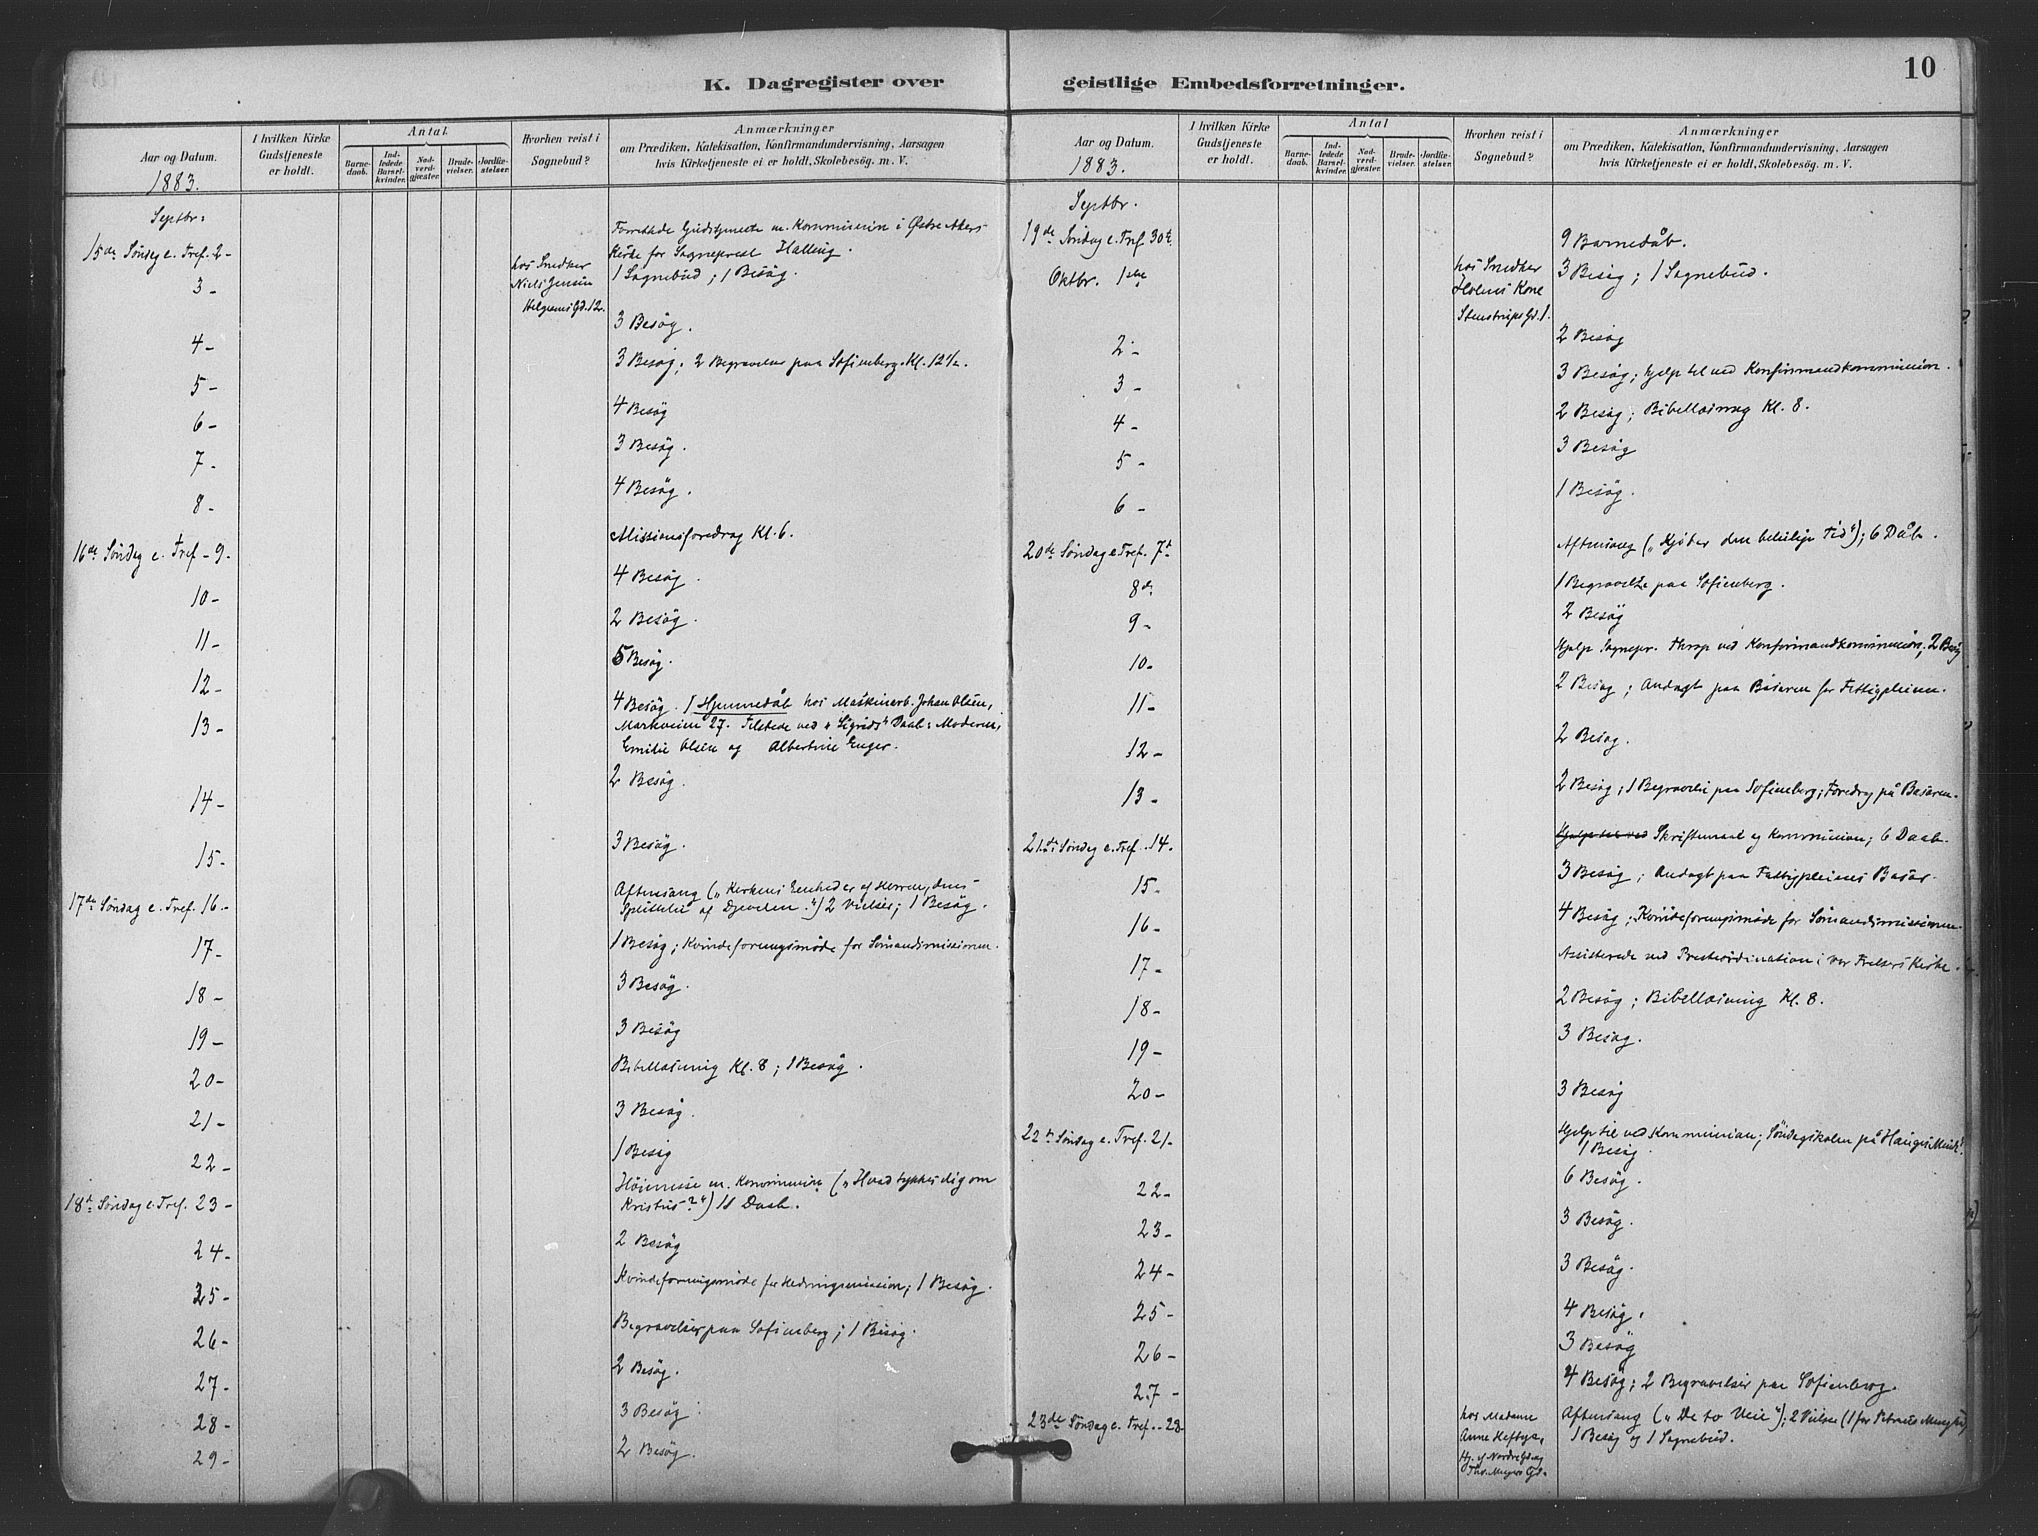 10
K. Dagregister over geistlige Embedsforretninger.
Aar og Datum.
1883.
I hvilken Kirke Gudstjeneste er holdt.
Antal
Barnedaab.
Indledede Barselkvinder.
Nadverdgjæster.
Brudevielser.
Jordfæstelser.
Hvorhen reist i Sognebud?
Anmærkninger
om Prædiken, Katekisation, Konfirmandundervisning, Aarsagen
hvis Kirketjeneste ei er holdt, Skolebesøg. m. V.
Septbr:
15de Søndag e. Tref. 2- Forrettede Gudstjeneste m. Kommunion i Østre Akers
Kirke for Sogneprest Halling.
3- hos Snedker Niels Jensen Helgesens Gd. 12. 1 Sognebud; 1 Besøg.
4- 3 Besøg.
5- 3 Besøg; 2 Begravelser paa Sofienberg Kl. 12½.
6- 4 Besøg
7- 3 Besøg.
8- 4 Besøg.
16de Søndag e. Tref - 9. Missionsforedrag Kl. 6.
10- 4 Besøg.
11- 2 Besøg.
12- 5 Besøg.
13- 4 Besøg. 1 Hjemmedåb hos Maskinarb. Johan Olsen,
Markveien 27. Tilstede ved "Sigrids" Daab: Moderen,
Emilie Olsen og Albertine Enger.
14- 2 Besøg.
15- 3 Besøg.
17de Søndag e. Tref. 16- Aftensang („Kirkens Eenhed er af Herren, dens
Splittelse af Djevelen.") 2 Vielser; 1 Besøg.
17- 1 Besøg; Kvindeforeningsmøde for Sømandsmissionen.
18- 3 Besøg.
19- 3 Besøg
20- Bibellæsning Kl. 8; 1 Besøg.
21- 3 Besøg.
22- 1 Besøg
18de Søndag e. Tref. 23- Høimesse m. Kommunion („Hvad tykkes dig om
Kristus?") 11 Daab.
24- 2 Besøg
25- Kvindeforeningsmøde for Hedningemission; 1 Besøg.
26- Begravelser paa Sofienberg; 1 Besøg.
27- 2 Besøg.
28- 3 Besøg.
29- 2 Besøg.
Aar og Datum.
1883.
I hvilken Kirke Gudstjeneste er holdt.
Antal
Barnedaab.
Indledede Barselkvinder.
Nadverdgjæster.
Brudevielser.
Jordfæstelser.
Hvorhen reist i Sognebud?
Anmærkninger
om Prædiken, Katekisation, Konfirmandundervisning, Aarsagen
hvis Kirketjeneste ei er holdt, Skolebesøg. m. V.
Septbr.
19de Søndag e. Tref. 30te. 9 Barnedåb.
Oktbr. 1ste hos Snedker Holms Kone Stenstrups Gd. 1. 3 Besøg; 1 Sognebud.
2- 2 Besøg
3- 3 Besøg; hjalp til ved Konfirmandkommunion.
4- 2 Besøg; Bibellæsning Kl. 8.
5- 3 Besøg
6- 1 Besøg.
20de Søndag e Tref. 7de Aftensang („Kjøber den beleilige Tid"); 6 Dåb.
8de 1 Begravelse paa Sofienberg.
9- 2 Besøg
10- Hjalp Sognepr. Thrap ved Konfirmandkommunion; 2 Besøg
11- 2 Besøg; Andagt paa Basaren for Fattigpleien.
12- 2 Besøg.
13- 2 Besøg; 1 Begravelse paa Sofienberg; Foredrag på Basaren.
21de Søndag e. Tref. 14. Hjalp til ved Skriftemaal og Kommunion; 6 Daab.
15- 3 Besøg; Andagt paa Fattigpleiens Basar.
16- 4 Besøg; Kvindeforeningsmøde for Sømandsmissionen.
17- Assisterede ved Presteordination i vor Frelsers Kirke.
18- 2 Besøg; Bibellæsning Kl. 8.
19- 3 Besøg.
20- 3 Besøg
22de Søndag e. Tref. 21- Hjalp til ved Kommunion; Søndagskolen på "Hauges Minde".
1 Besøg.
22- 6 Besøg.
23- 3 Besøg.
24- 3 Besøg.
25- 4 Besøg.
26- 3 Besøg
27- 4 Besøg; 2 Begravelser paa Sofienberg.
23de Søndag e. Tref. - 28- hos Madame Anne Heftye, Hj. af Nordregd. og Thv. Meyers Gd. Aftensang („De to Veie"); 2 Vielse (1 for Petrus
1 Besøg og 1 Sognebud.